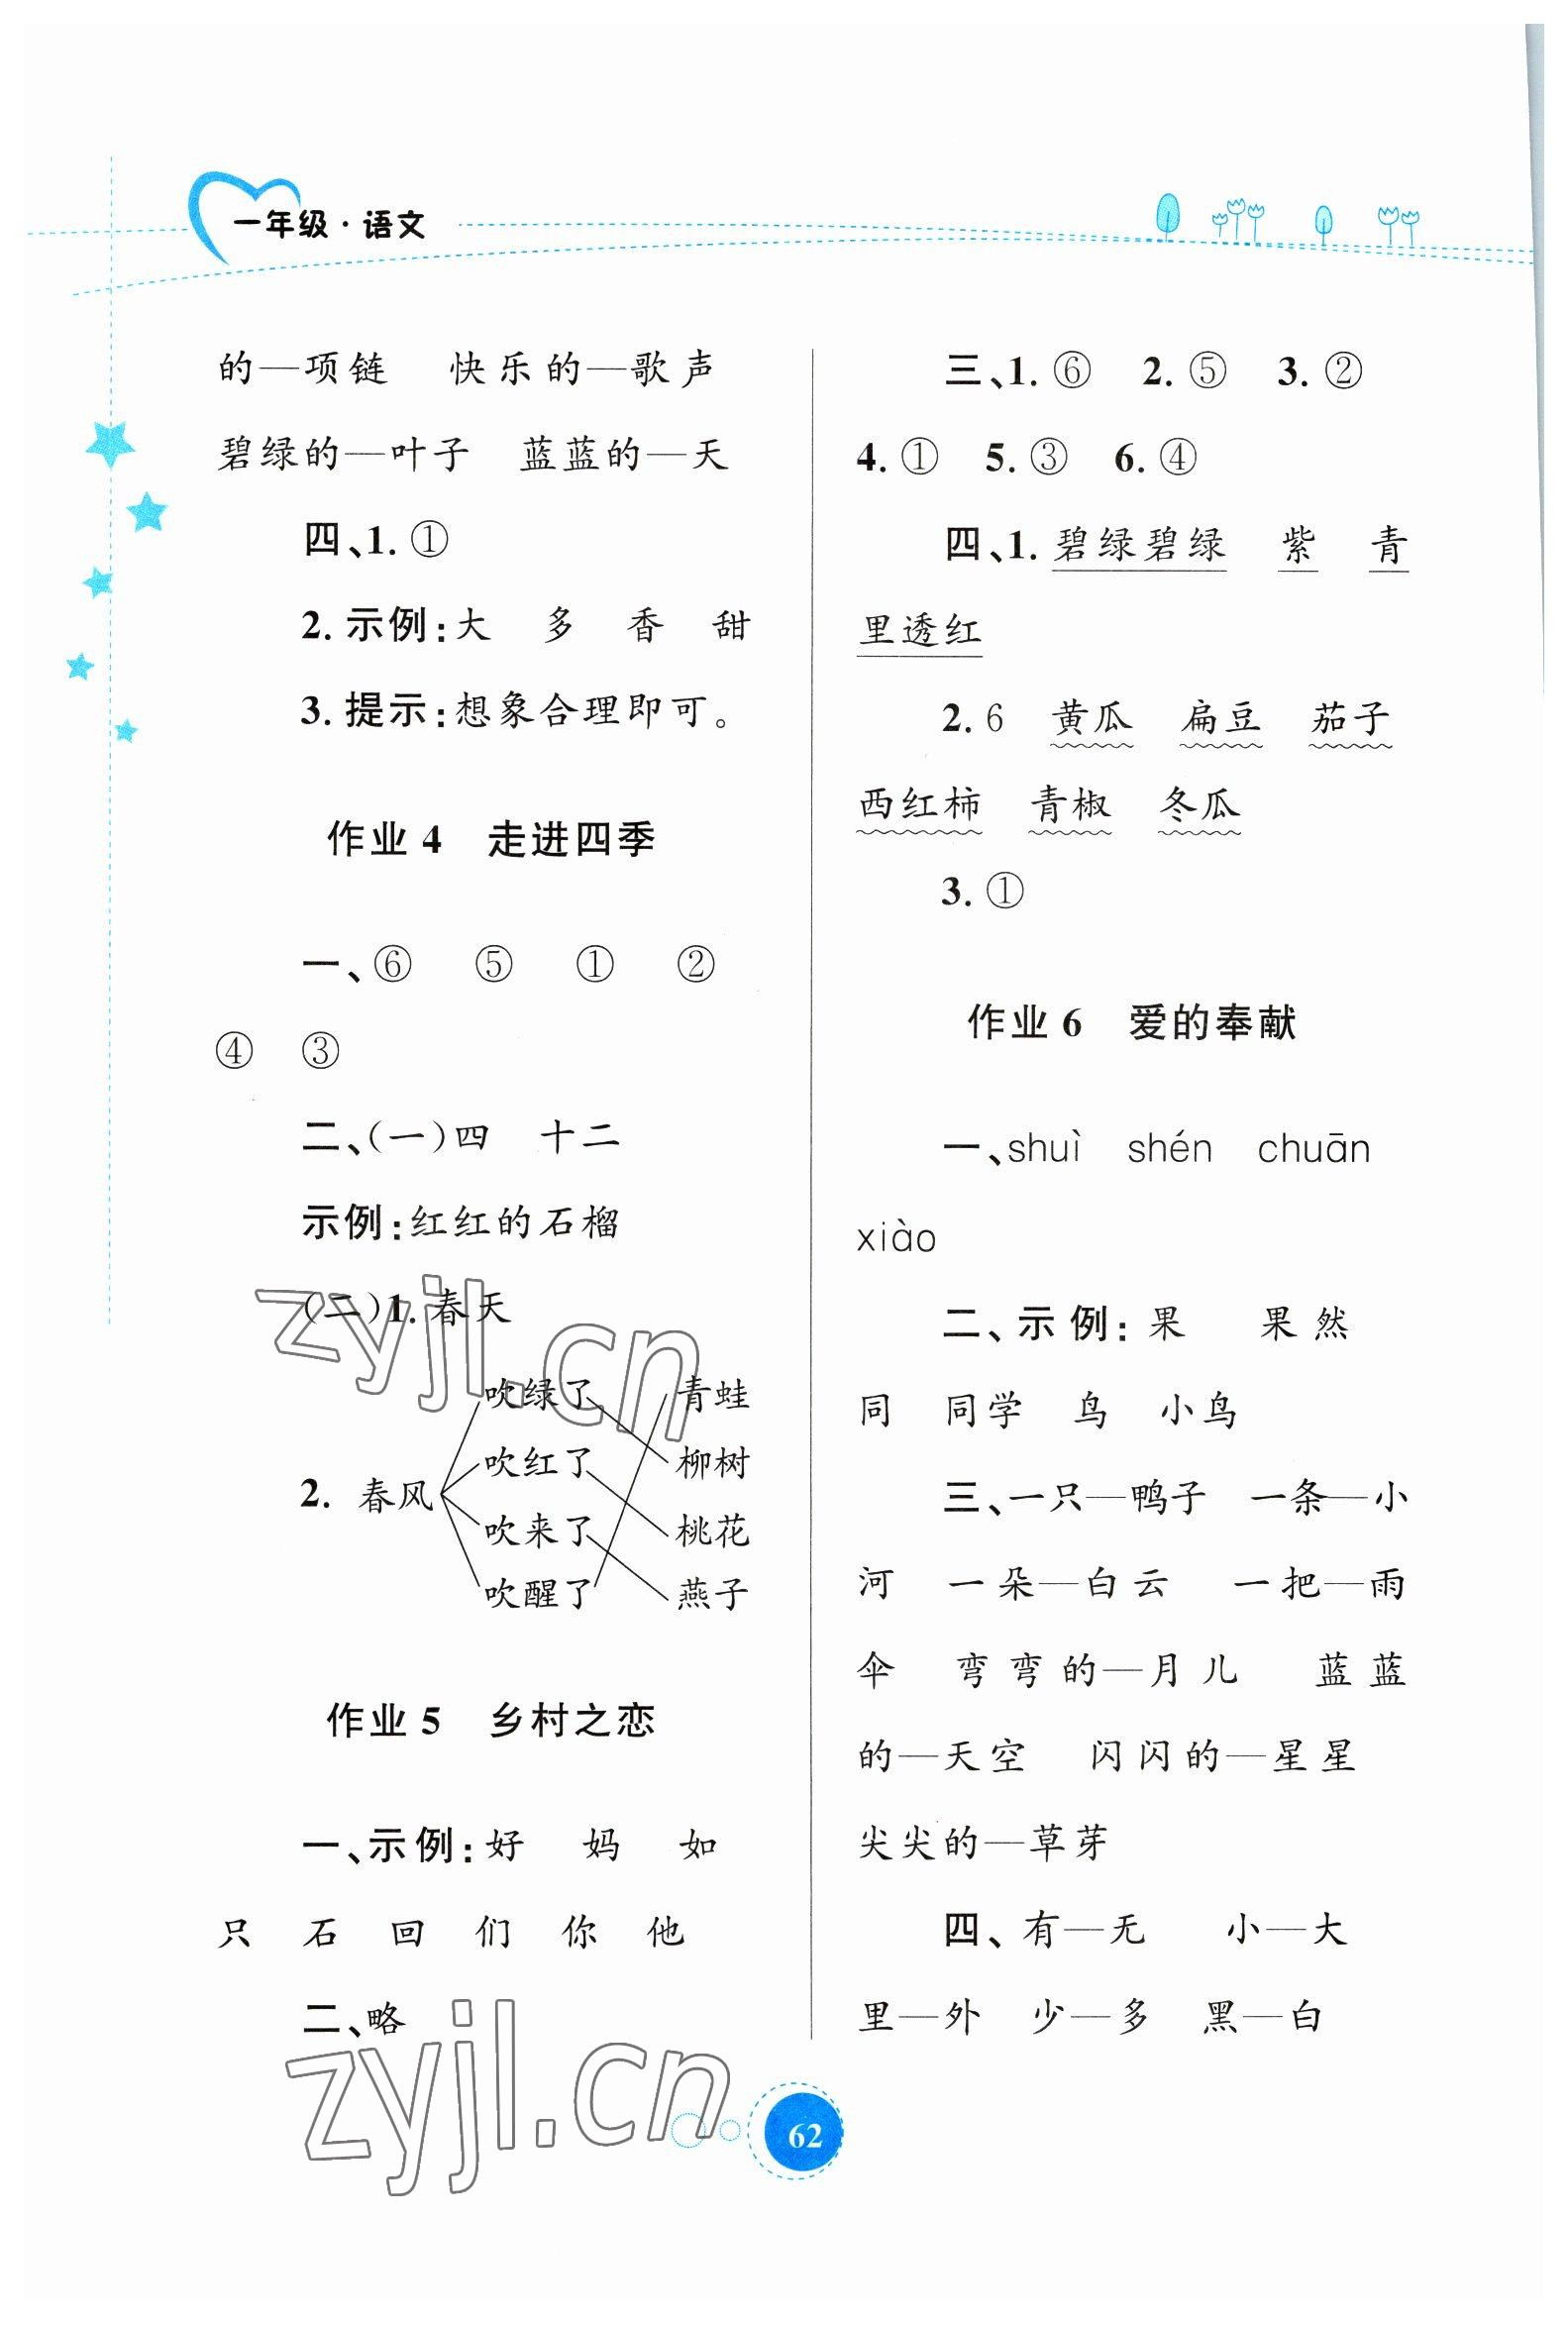 一年级·语文
的—项链 快乐的—歌声
碧绿的—叶子 蓝蓝的—天
四、1. ①
2. 示例:大 多 香 甜
3. 提示:想象合理即可。
作业 4 走进四季
一、⑥ ⑤ ① ②
④ ③
二、(一)四 十二
示例:红红的石榴
(二)1. 春天
2. 春风
吹绿了 青蛙
吹红了 柳树
吹来了 桃花
吹醒了 燕子
作业 5 乡村之恋
一、示例:好 妈 如
只 石 回 们 你 他
二、略
三、1. ⑥ 2. ⑤ 3. ②
4. ① 5. ③ 6. ④
四、1. 碧绿碧绿 紫 青
里透红
2. 6 黄瓜 扁豆 茄子
西红柿 青椒 冬瓜
3. ①
作业 6 爱的奉献
一、shuì shén chuān
xiào
二、示例:果 果然
同 同学 鸟 小鸟
三、一只—鸭子 一条—小
河 一朵—白云 一把—雨
伞 弯弯的—月儿 蓝蓝
的—天空 闪闪的—星星
尖尖的—草芽
四、有—无 小—大
里—外 少—多 黑—白
62
zyjl.cn
zyjl.cn